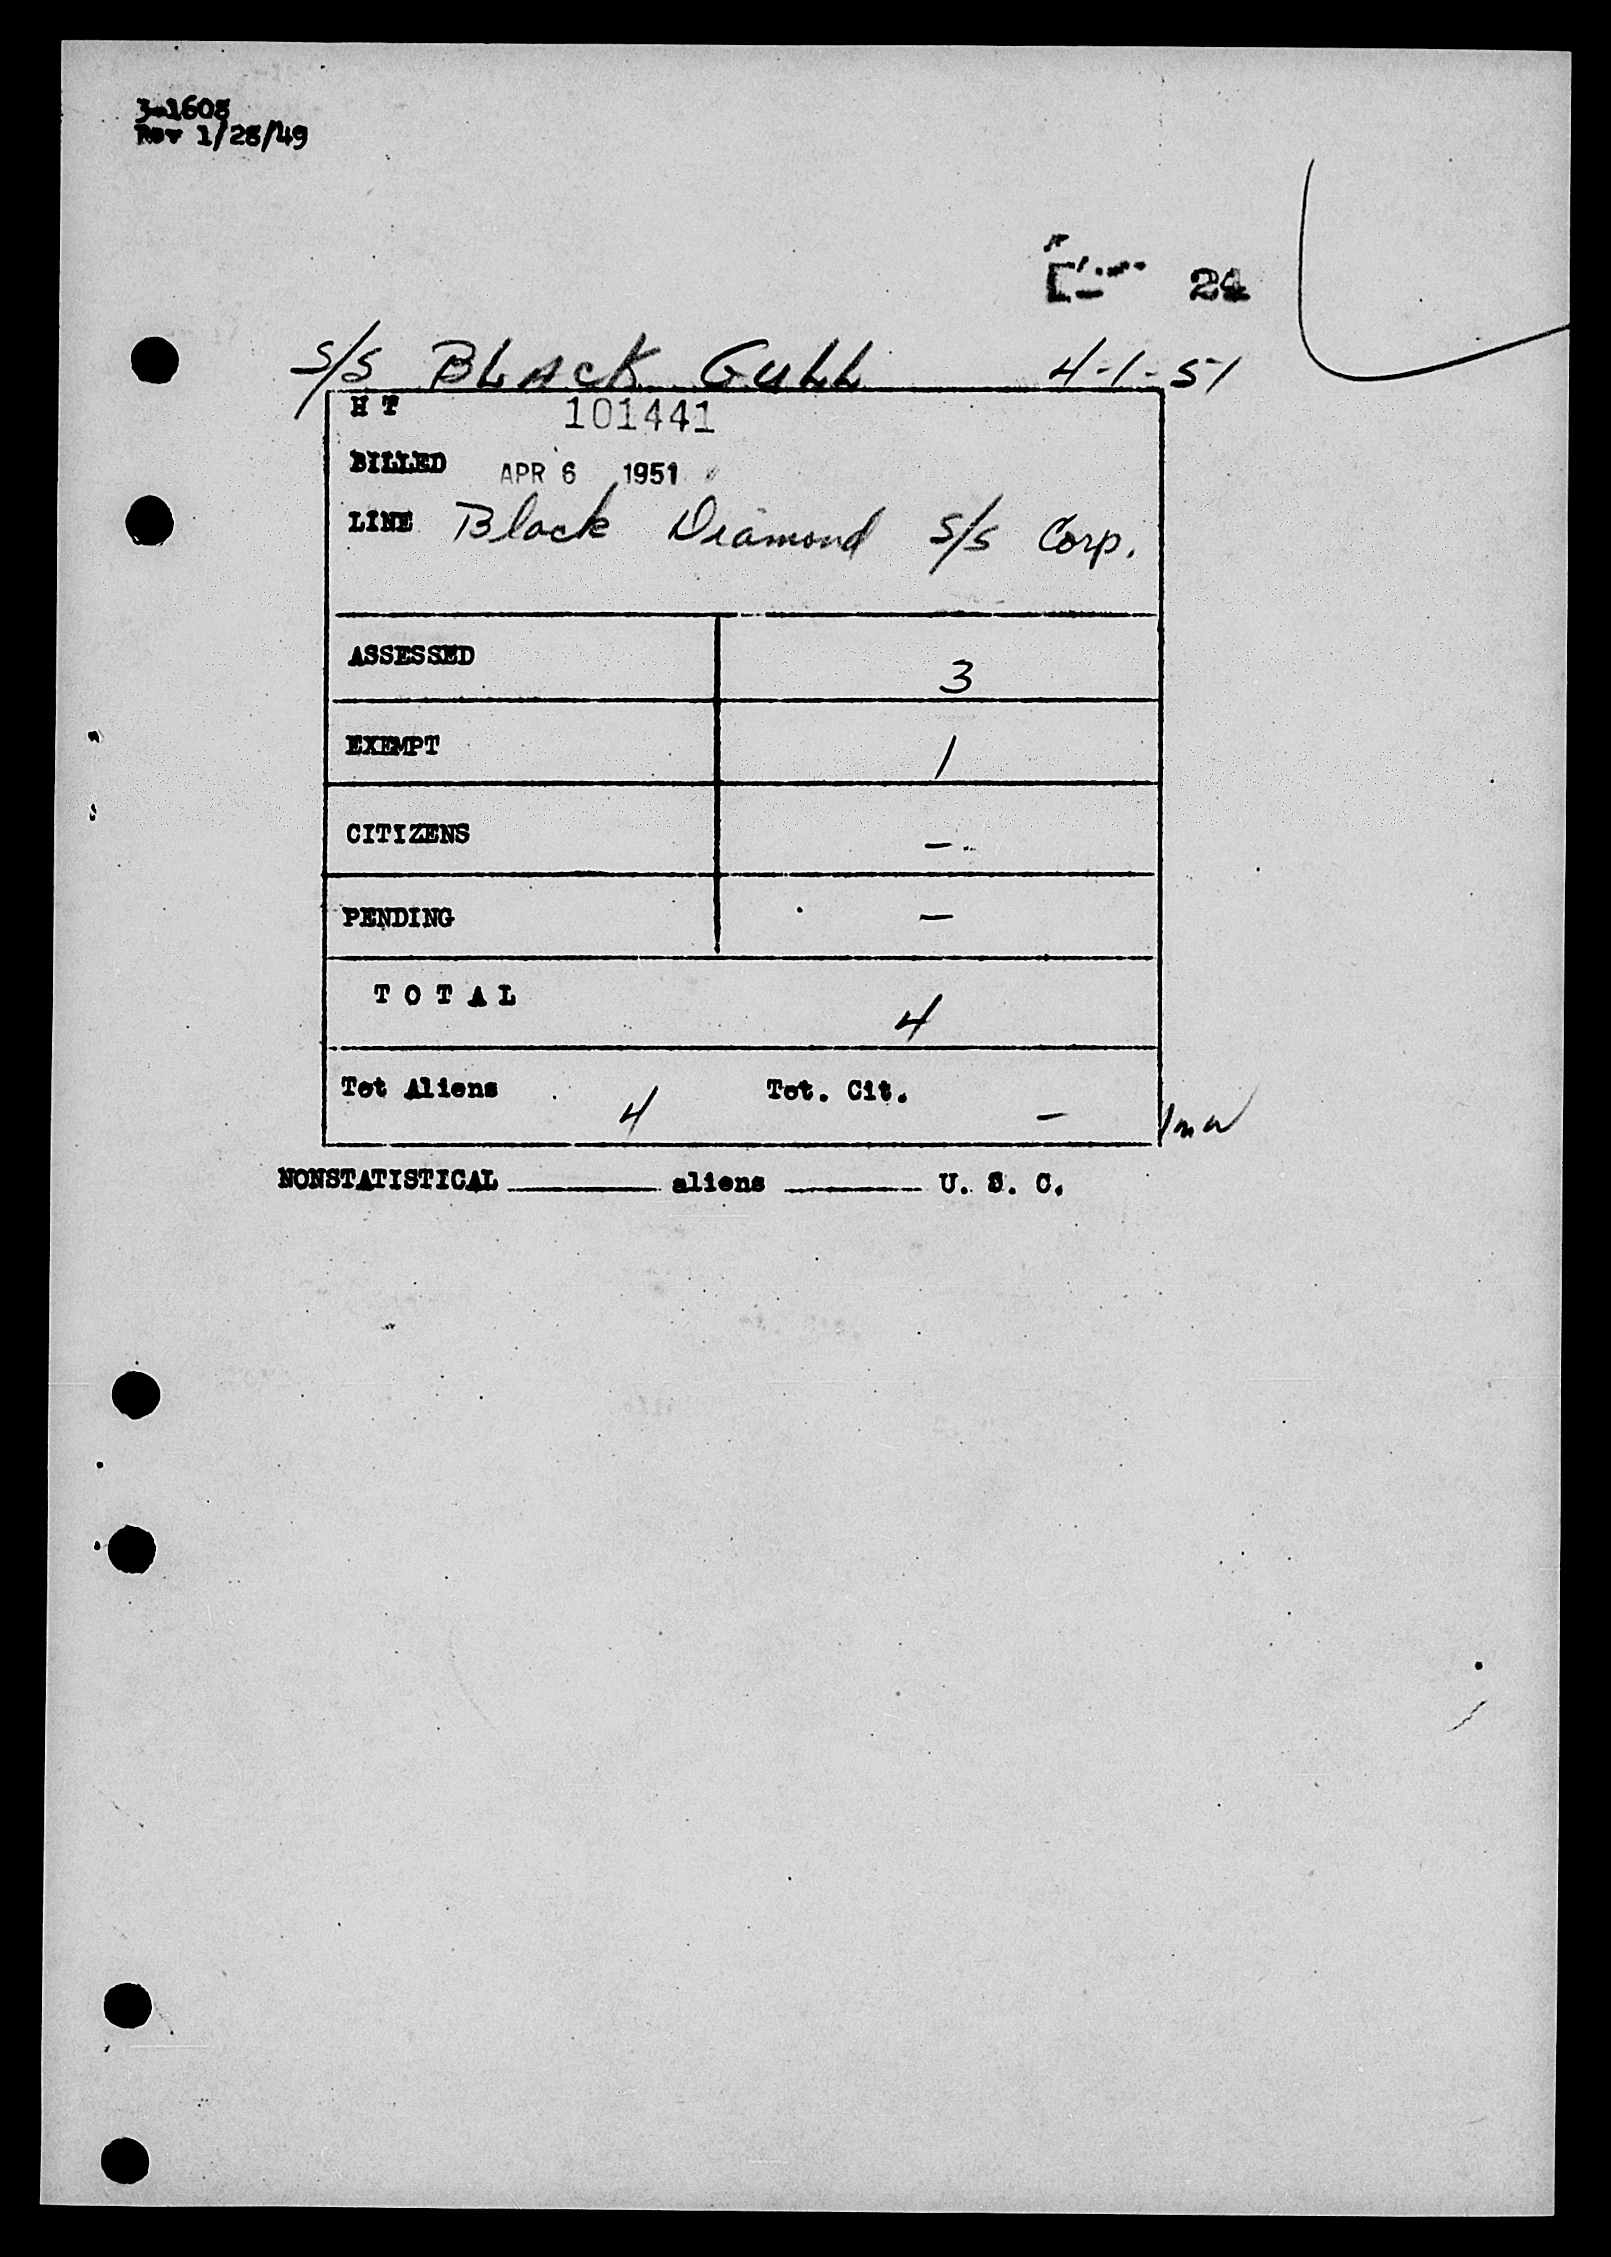 3-1608
Rev 1/28/49
24
S/S BLACK GULL 4-1-51
H T 101441
BILLED APR 6 1951
LINE Black Diamond S/S Corp.
ASSESSED 3
EXEMPT 1
CITIZENS -
PENDING -
T O T A L 4
Tot Aliens 4 Tot. Cit. -
NONSTATISTICAL ______ aliens ______ U. S. C.